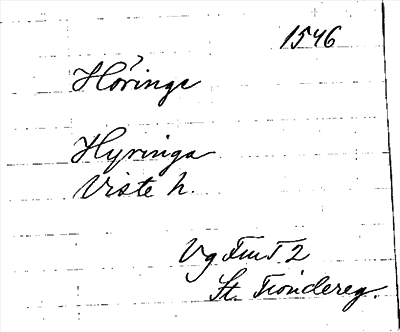 1546
Höringe
Hyringa
Viste h.
Vg FmT 2
St. Tiondereg.